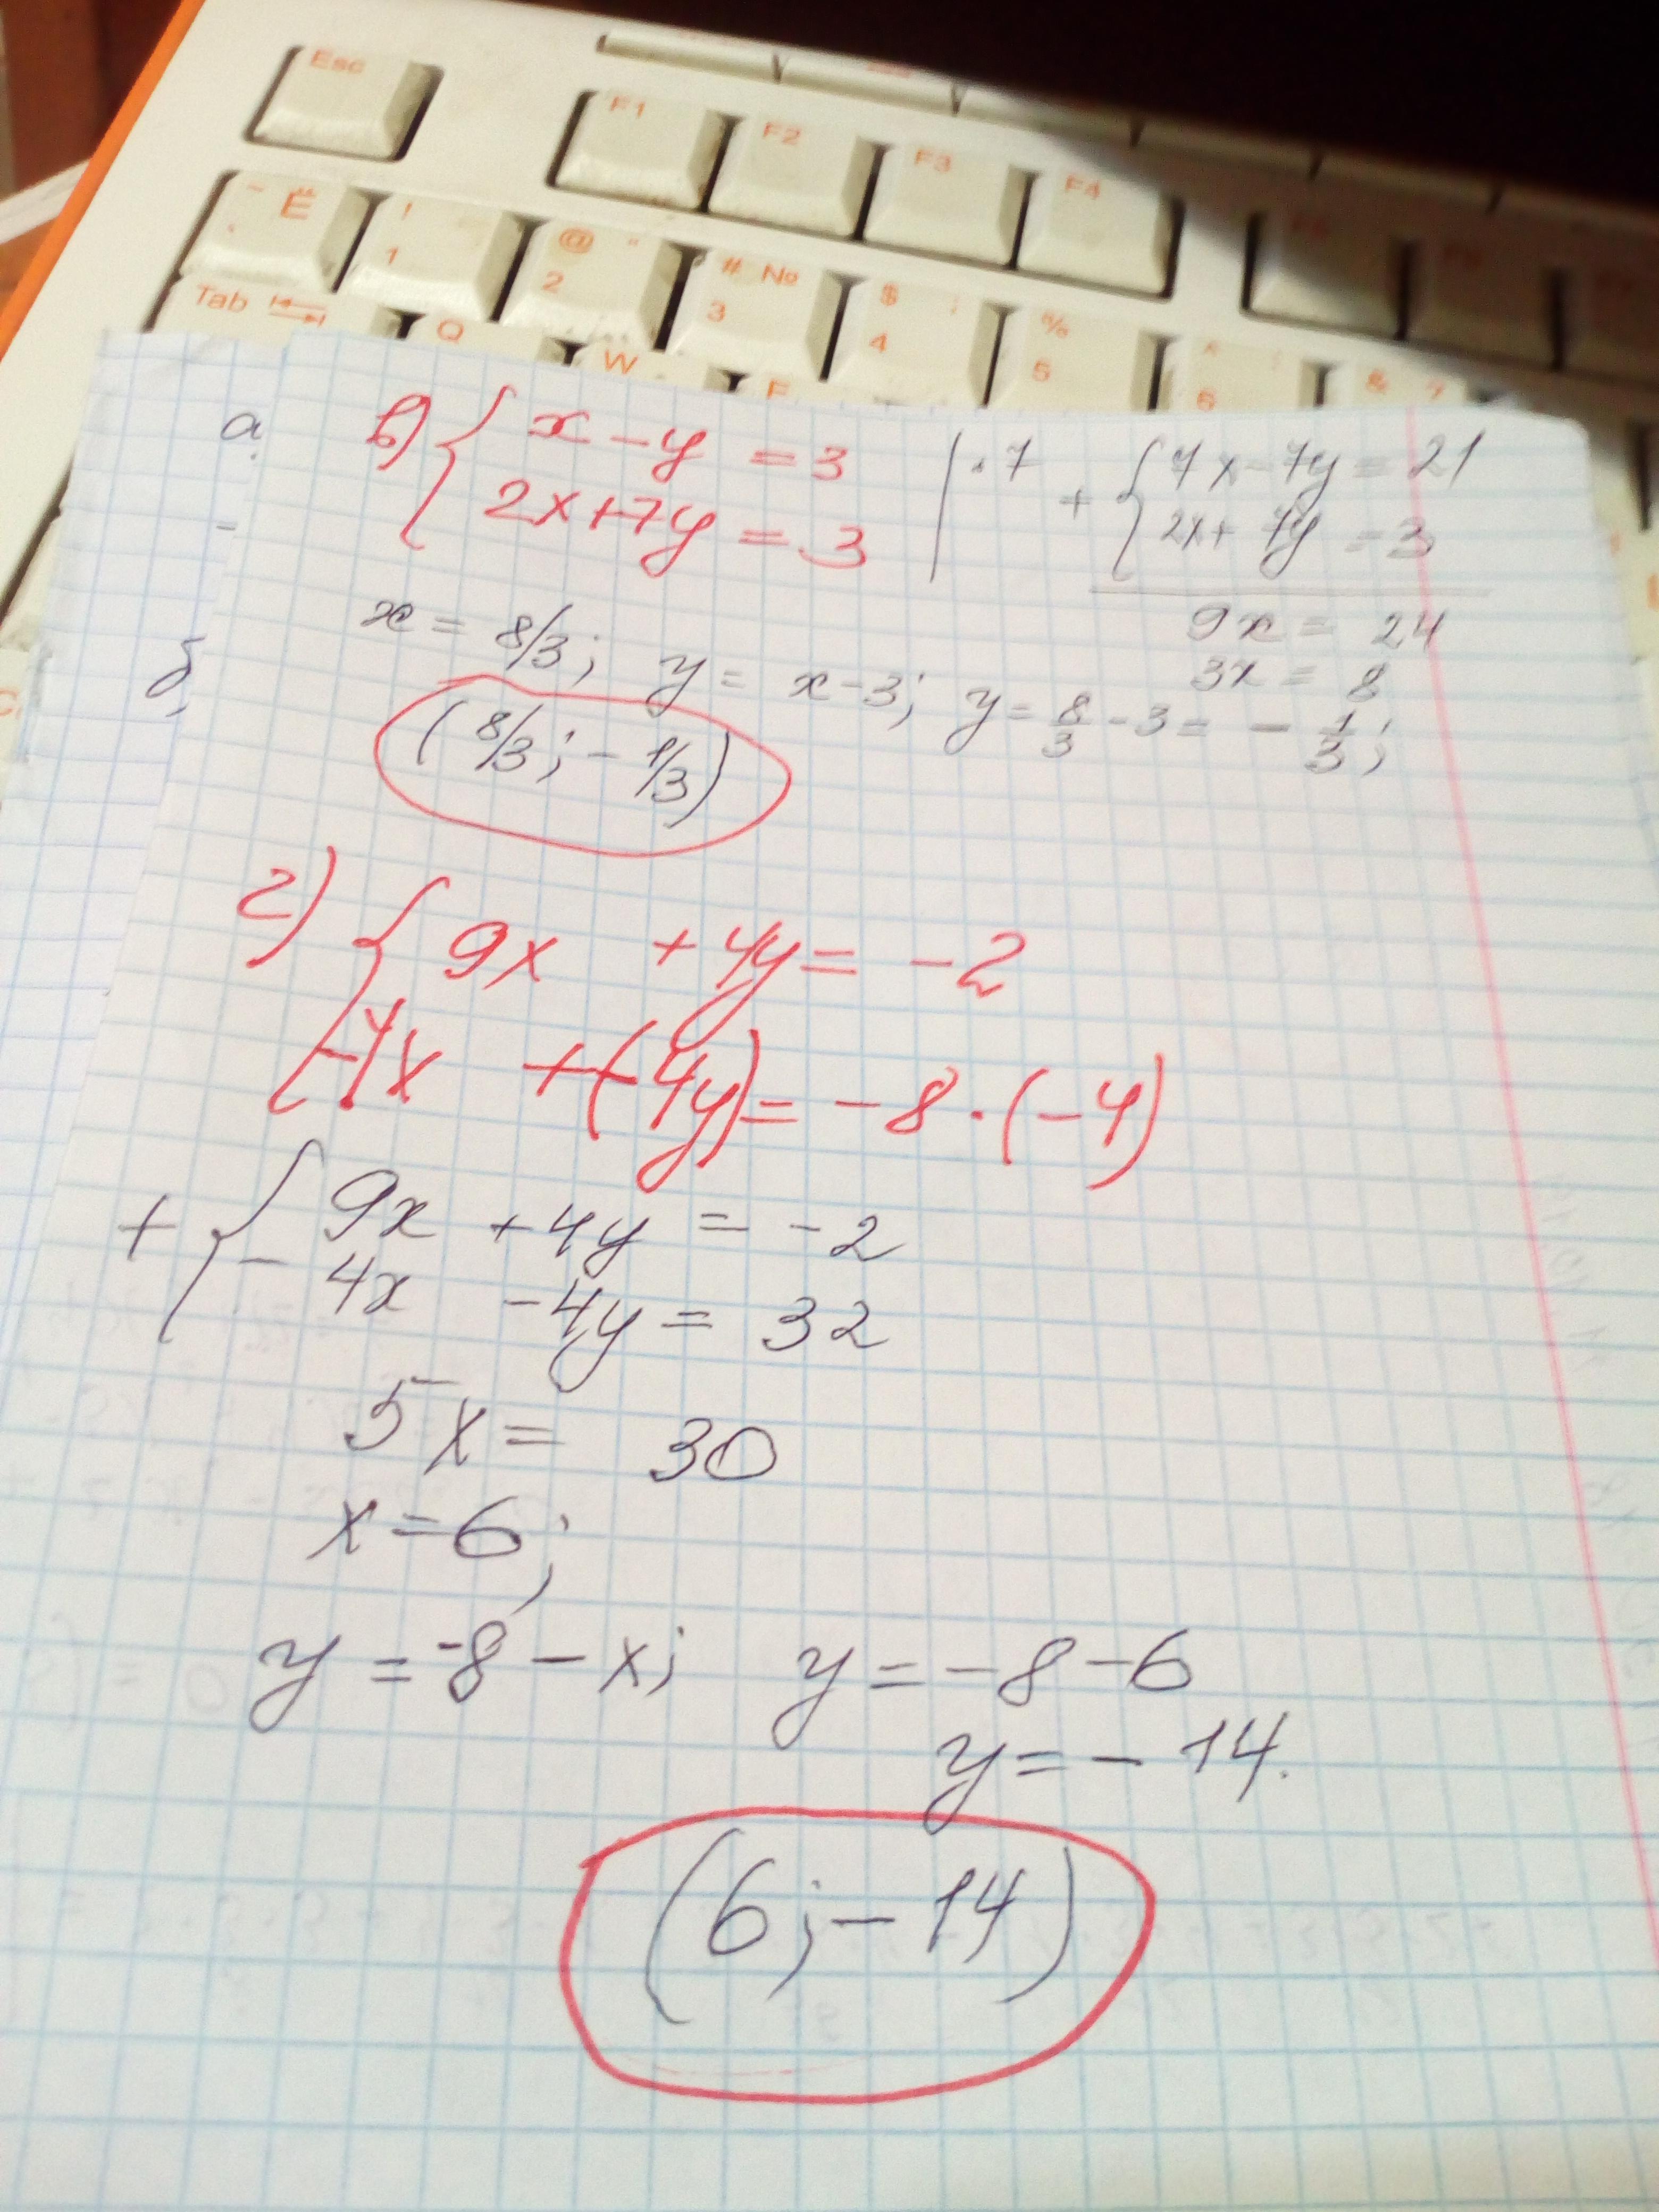 Esc
F1 F2 F3 F4
~ Ё ! 1 @ " 2 # № 3 $ ; 4 % 5 ^ : 6 & ?
Tab Q W E
а
б,
в) { x - y = 3 | ·7 + { 7x - 7y = 21
2x + 7y = 3 2x + 7y = 3
9x = 24
3x = 8
x = 8/3; y = x - 3; y = 8/3 - 3 = - 1/3;
(8/3; - 1/3)
г) { 9x + 4y = -2
-4x + (-4y) = -8 · (-4)
+ { 9x + 4y = -2
- 4x - 4y = 32
5x = 30
x = 6;
y = -8 - x; y = -8 - 6
y = - 14.
(6; - 14)